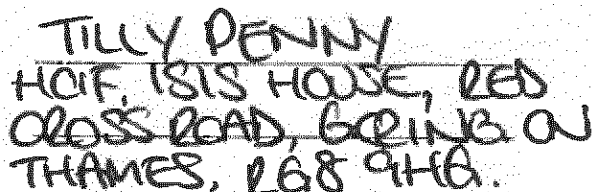 TILLY PENNY
HCIF, ISIS HOUSE, RED
CROSS ROAD, GORING ON
THAMES, RG8 9HG.